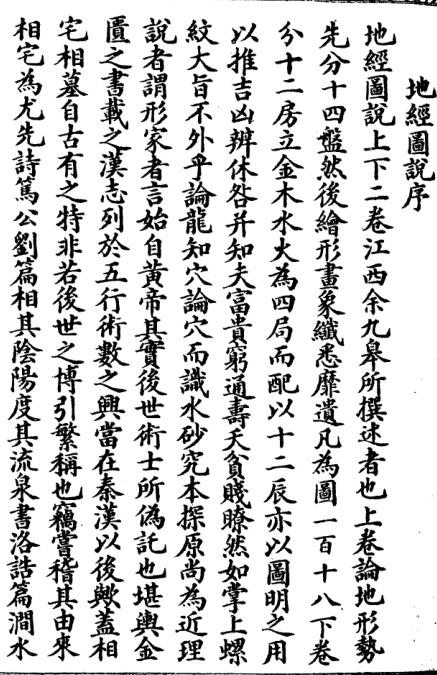 地經圖說序
地經圖說上下二卷江西余九皋所撰述者也上卷論地形勢
先分十四盤然後繪形畫象纖悉靡遺凡為圖一百十八下卷
分十二房立金木水火為四局而配以十二辰亦以圖明之用
以推吉凶辨休咎并知夫富貴窮通壽夭貧賤瞭然如掌上螺
紋大旨不外乎論龍知穴論穴而識水砂究本探原尚為近理
說者謂形家者言始自黃帝其實後世術士所偽託也堪輿金
匱之書載之漢志列於五行術數之興當在秦漢以後歟蓋相
宅相墓自古有之特非若後世之博引繁稱也竊嘗稽其由來
相宅為尤先詩篤公劉篇相其陰陽度其流泉書洛誥篇澗水